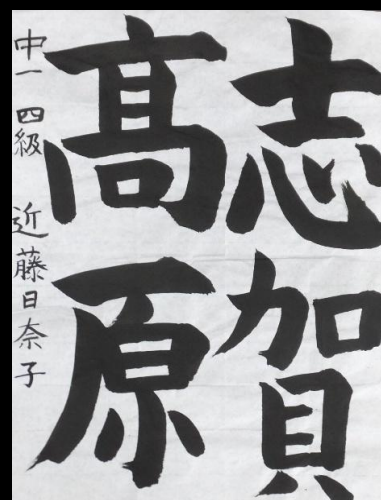 志賀
髙原
中一 四級 近藤日奈子